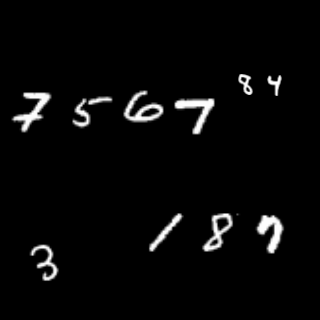 7 5 6 7 8 4
3 1 8 7